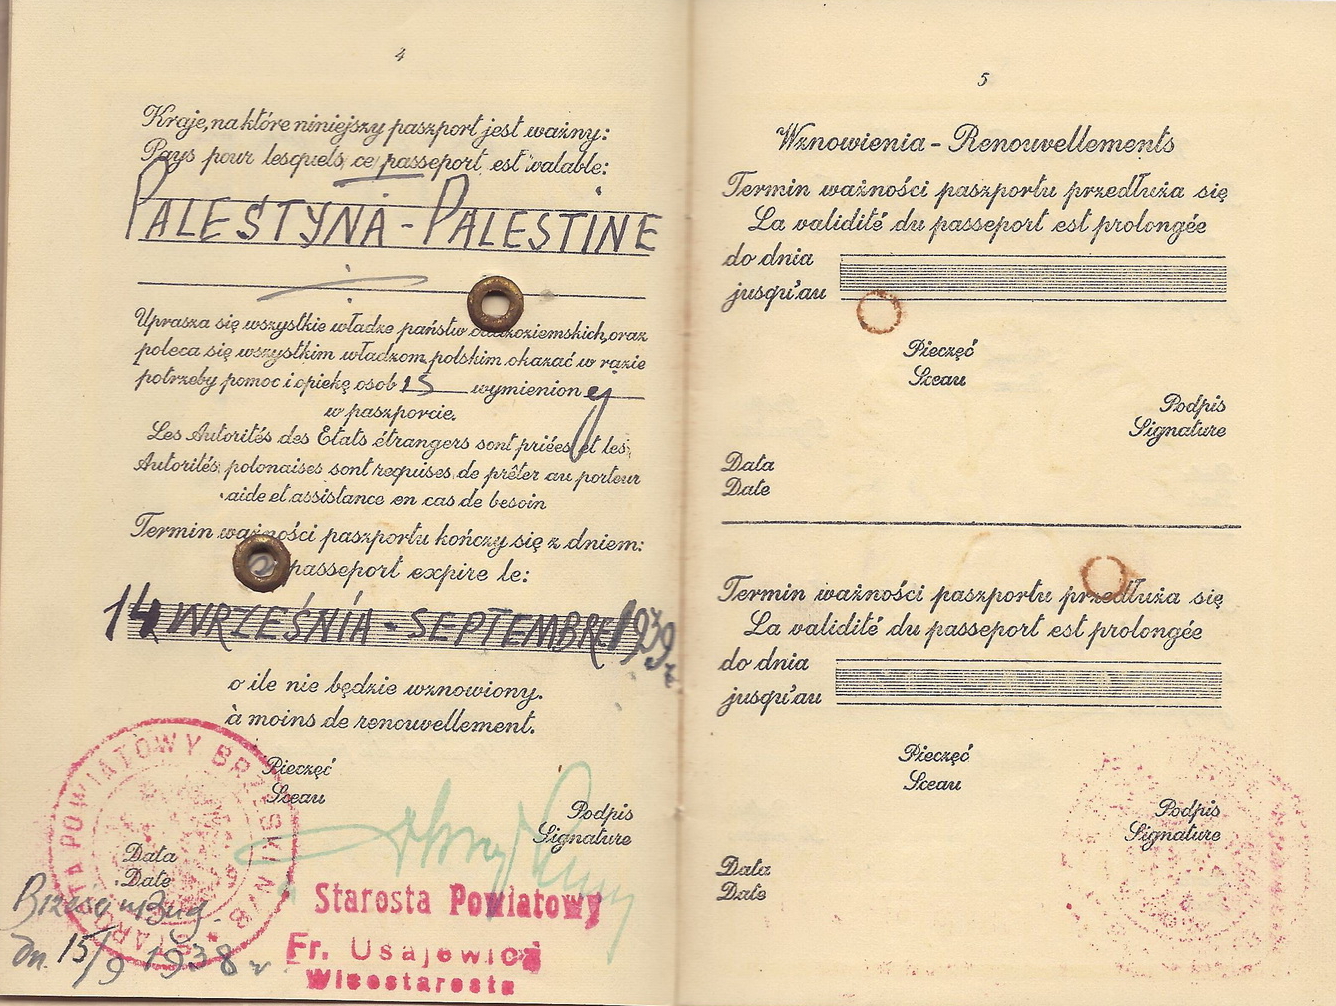 4
Kraje, na które niniejszy paszport jest ważny:
Pays pour lesquels ce passeport est valable:
PALESTYNA - PALESTINE
Uprasza się wszystkie władze państw cudzoziemskich, oraz
poleca się wszystkim władzom polskim okazać w razie
potrzeby pomoc i opiekę osob wymienion ej
w paszporcie.
Les Autorités des Etats étrangers sont priées et les
Autorités polonaises sont requises de prêter au porteur
aide et assistance en cas de besoin
Termin ważności paszportu kończy się z dniem:
passeport expire le:
14 WRZEŚNIA - SEPTEMBRE 1939 r.
o ile nie będzie wznowiony.
à moins de renouvellement.
Pieczęć
Sceau
Podpis
Signature
Data
Date
STAROSTA POWIATOWY BRZESKI N/B
Brześć n/Bug.
dn. 15/9 1938 r
Starosta Powiatowy
Fr. Usajewicz
Wicestarosta
5
Wznowienia - Renouvellements
Termin ważności paszportu przedłuża się
La validité du passeport est prolongée
do dnia
jusqu'au
Pieczęć
Sceau
Podpis
Signature
Data
Date
Termin ważności paszportu przedłuża się
La validité du passeport est prolongée
do dnia
jusqu'au
Pieczęć
Sceau
Podpis
Signature
Data
Date